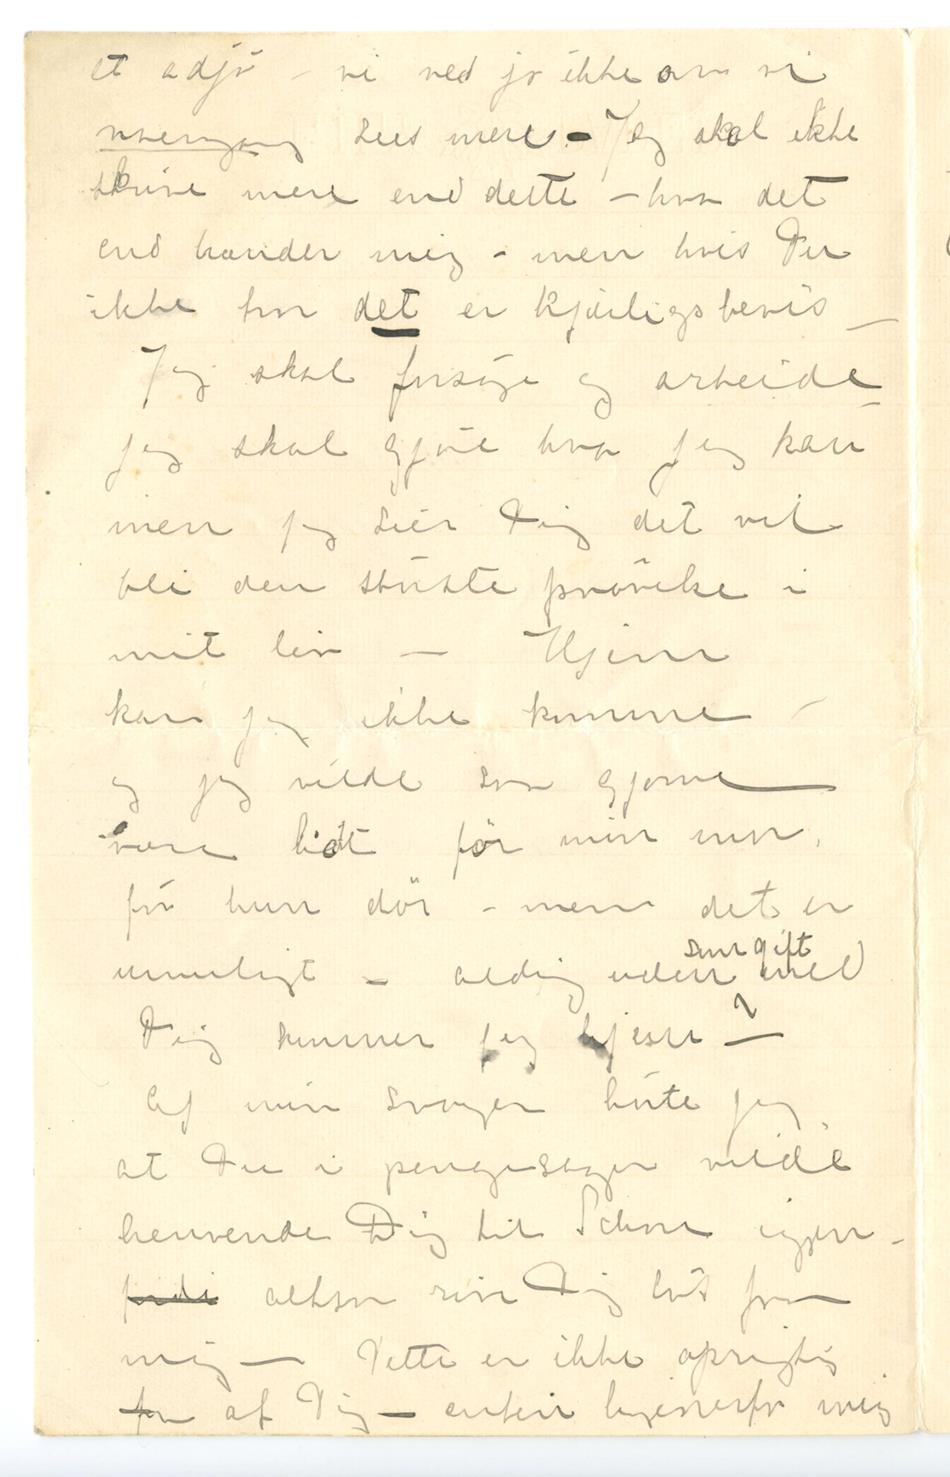 et adjö – vi ved jo ikke om vi
nogengang sees mere – Jeg skal ikke
skrive mere end dette – hva det
end hænder mig – men hvis Du
ikke tror det er kjærligsbevis –
Jeg skal forsøge og arbeide –
jeg skal gjöre hva jeg kan
men jeg sier Dig det vil
bli den störste prövelse i
mit liv – Hjem
kan jeg ikke komme –
og jeg vilde saa gjerne
være lidt før min mor,
för hun dör – men det er
umuligt – aldrig uden med
som gift
Dig kommer jeg hjem –
Af min svoger hörte jeg
at Du i pengesager vilde
henvende Dig til Schou igjen –
fordi altsaa rive Dig lös fra
mig – Dette er ikke oprigtig
af Dig – enten mig